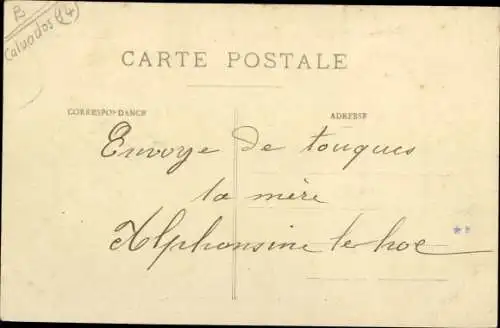 B
Calvados 14
CARTE POSTALE
CORRESPONDANCE
ADRESSE
Envoye de touques
ta mère
Alphonsine le hoc
**